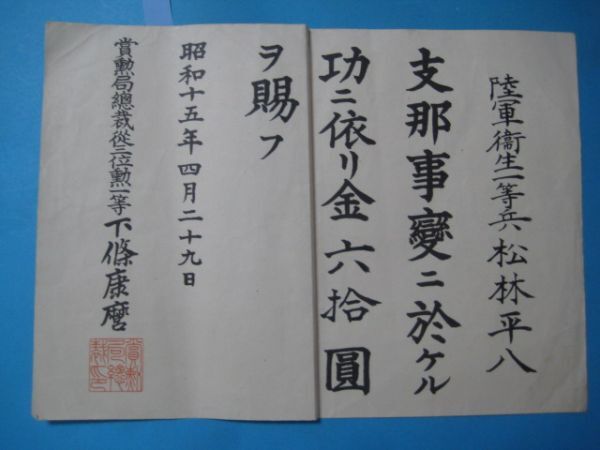 陸軍衞生一等兵松林平八
支那事變ニ於ケル
功ニ依リ金六拾圓
ヲ賜フ
昭和十五年四月二十九日
賞勲局總裁從三位勲一等下條康麿
賞勲局總裁印